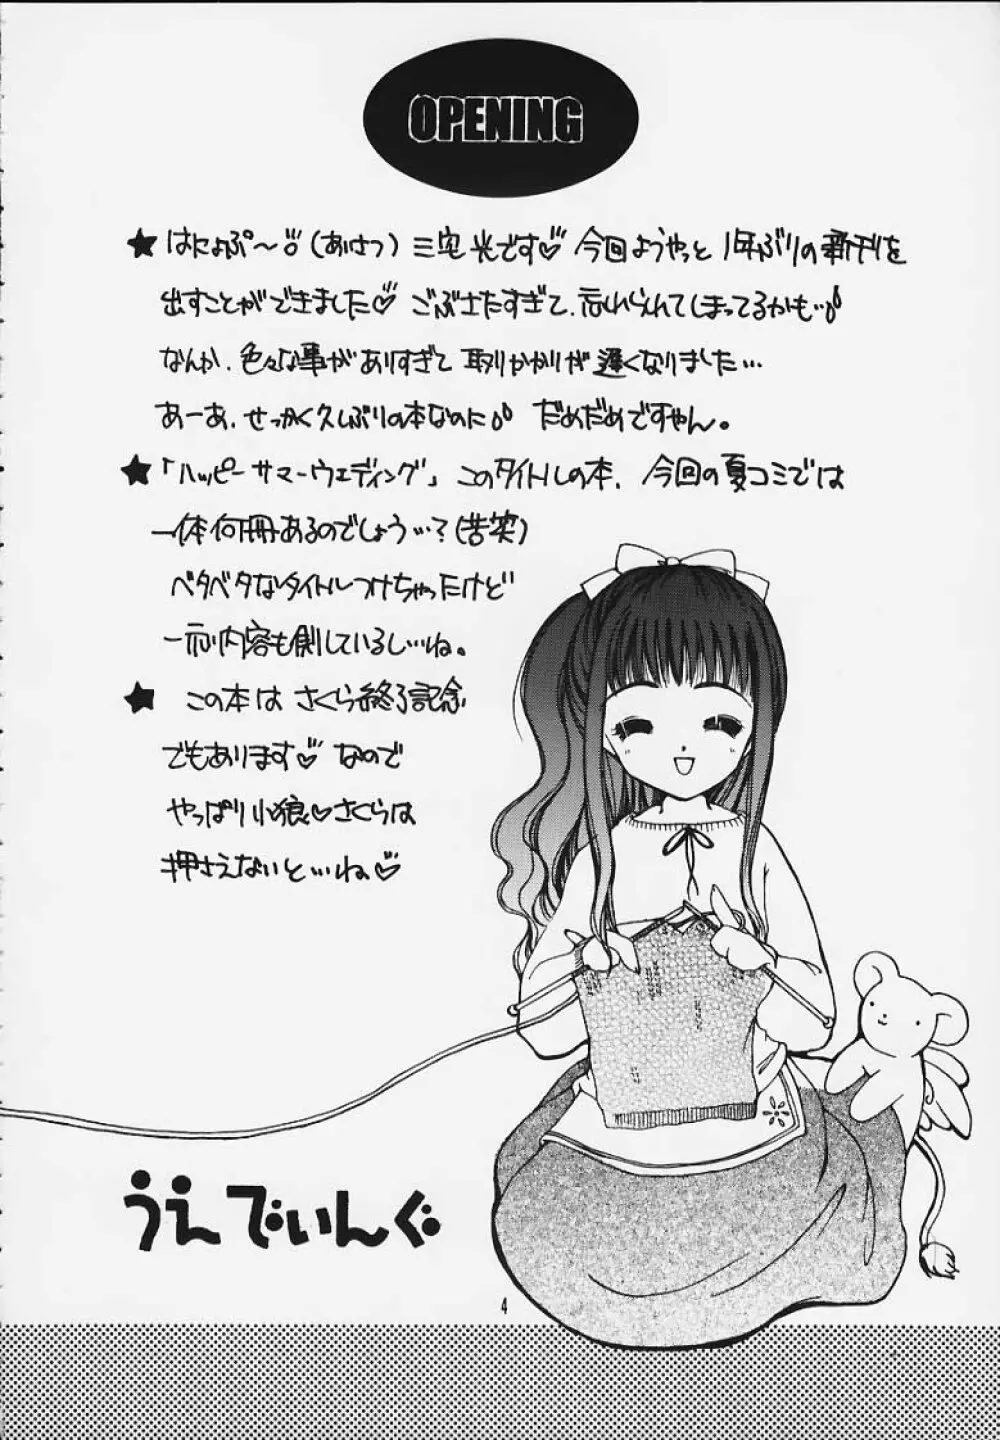 OPENING
★はにょぷ〜♪(あいさつ)三宅光です♡今回ようやっと1年ぶりの新刊を
出すことができました♡ごぶさたすぎて、忘れられてしまってるかも…
なんか、色々な事がありすぎて取りかかりが遅くなりました…
あーあ、せっかく久しぶりの本なのに だめだめですやん。
★「ハッピーサマーウェディング」このタイトルの本、今回の夏コミでは
一体何冊あるのでしょう…?(苦笑)
ベタベタなタイトルつけちゃったけど
一応内容も側しているし…ね。
★この本はさくら終了記念
でもあります♡なので
やっぱり小狼♡さくらは
押さえないと…ね♡
うえでぃんぐ
4